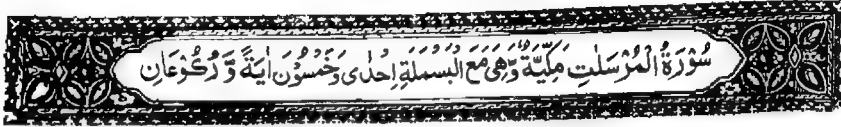 سُوْرَةُ الْمُرْسَلٰتِ مَكِّيَّةٌ وَّهِيَ مَعَ الْبَسْمَلَةِ اِحْدٰى وَخَمْسُوْنَ اٰيَةً وَّرُكُوْعَانِ